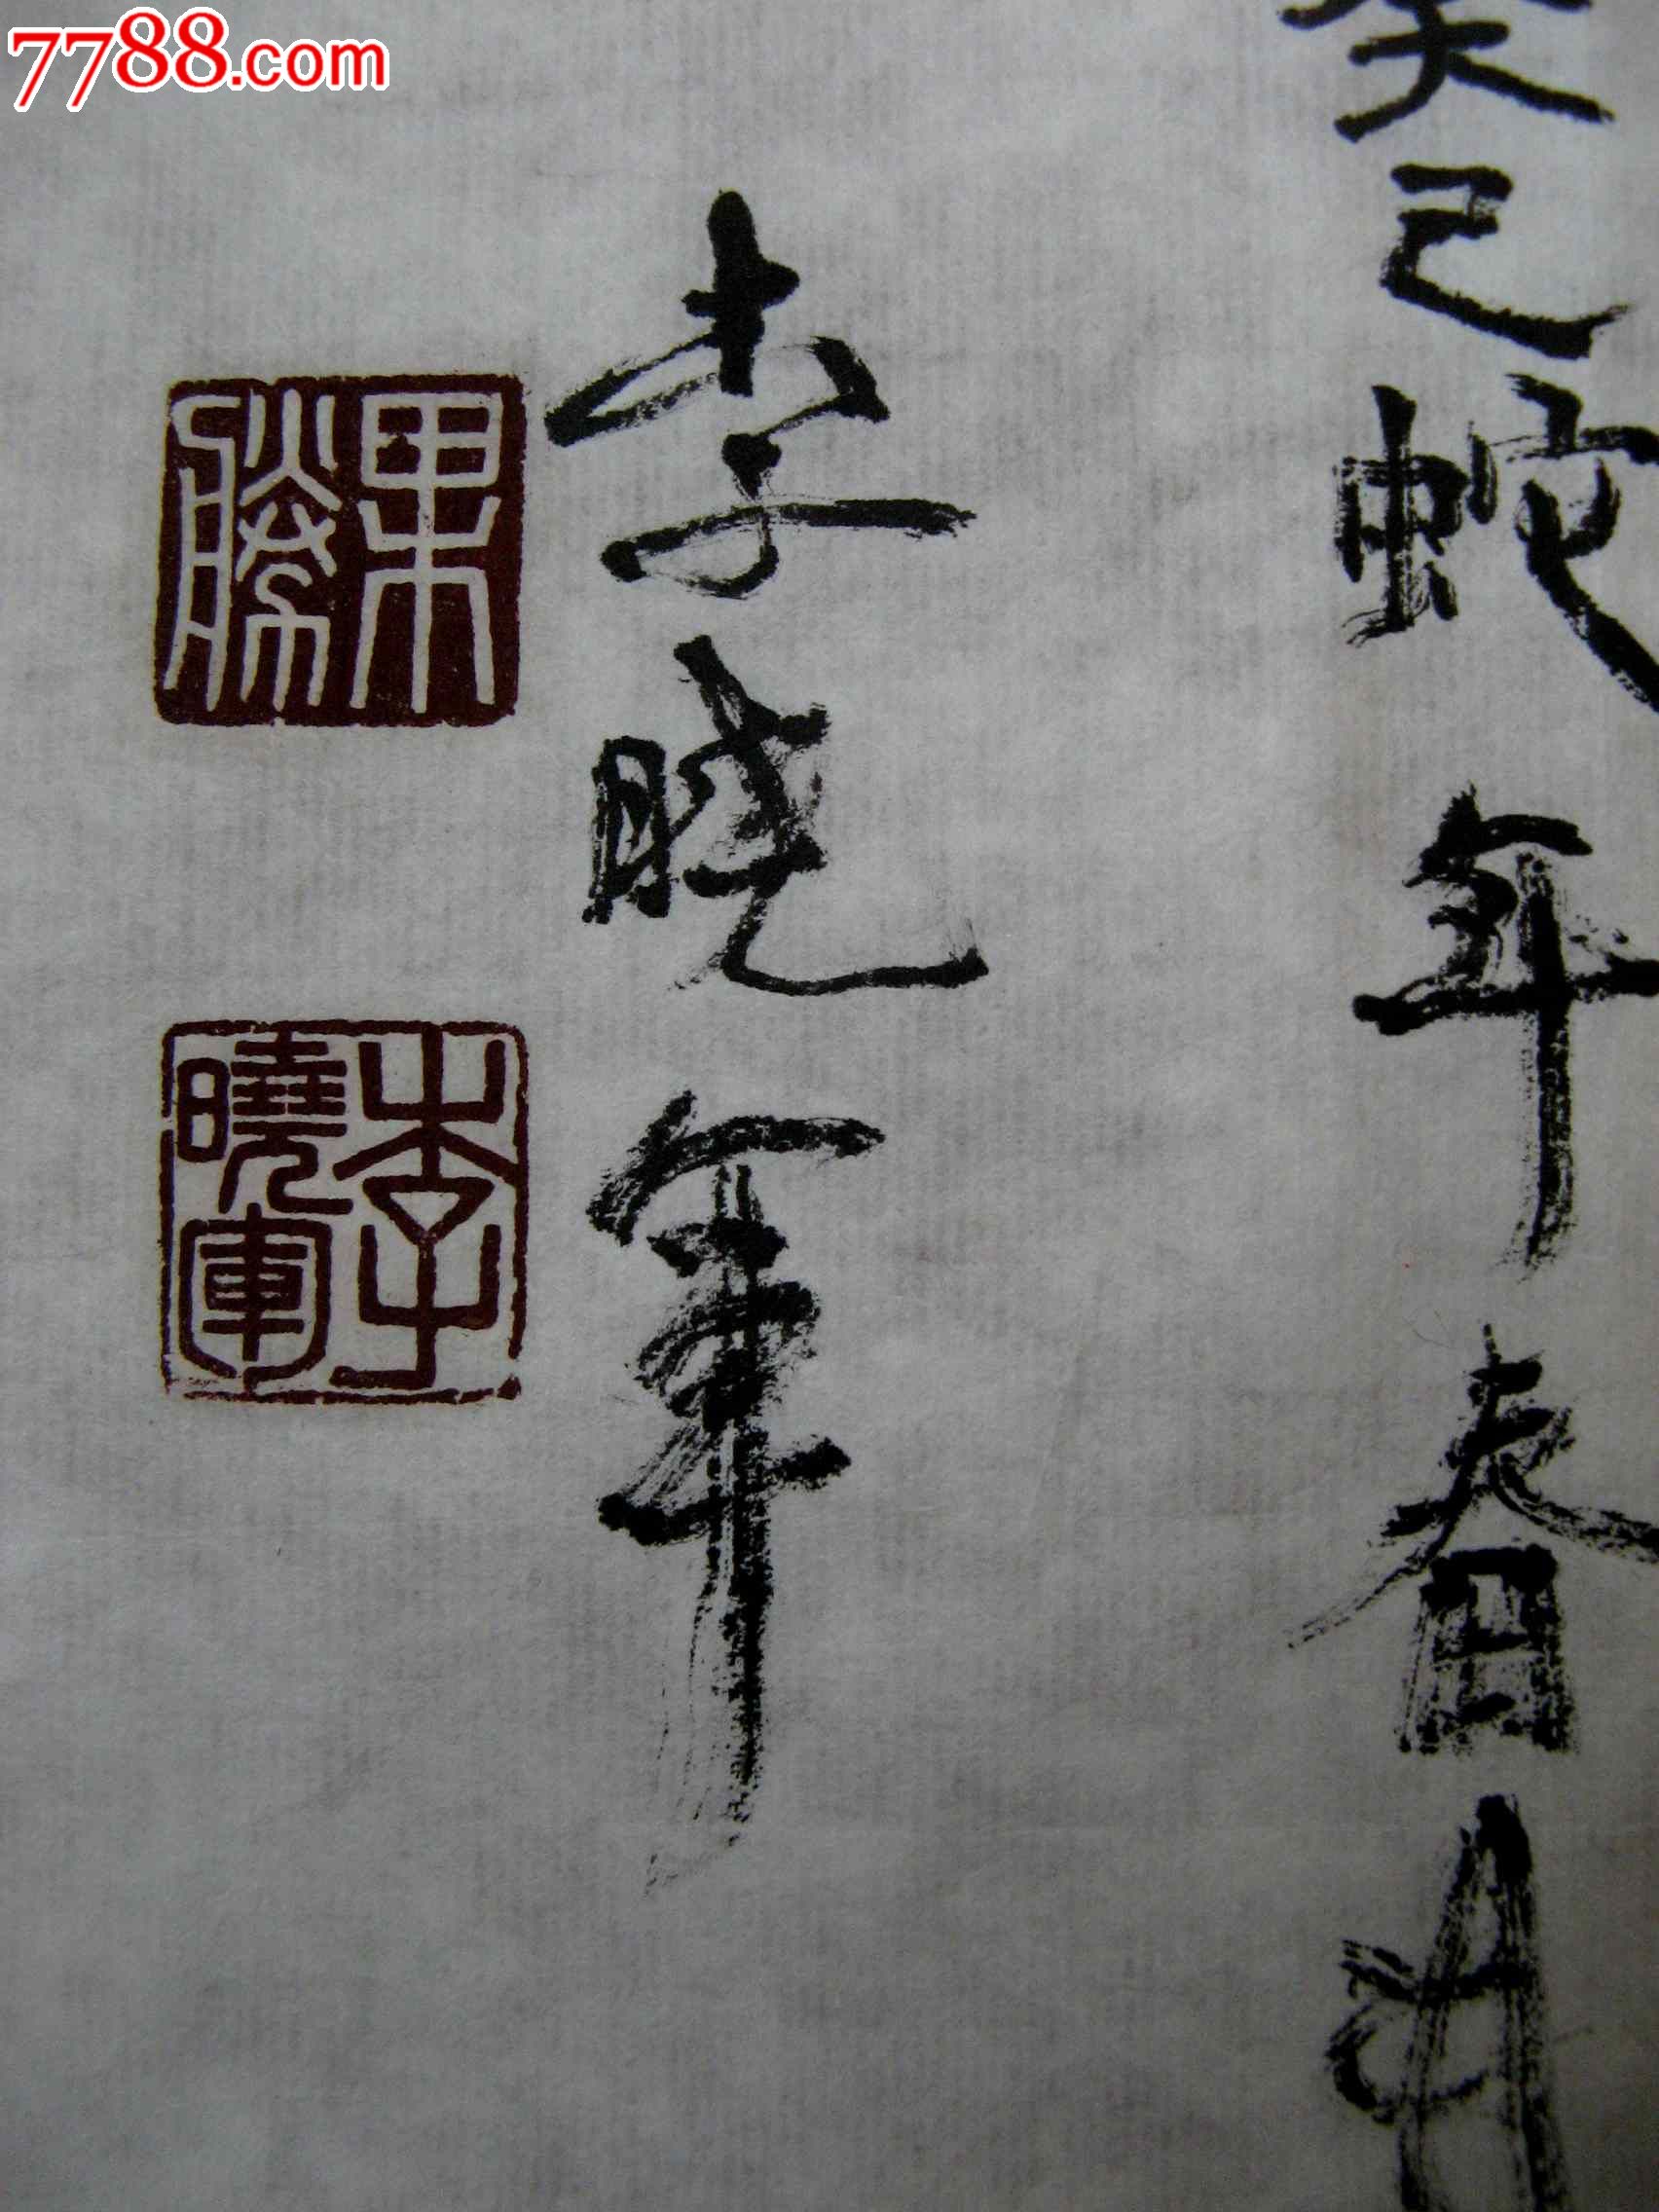 7788.com
癸巳蛇年春月
李晓军
果勝
李曉軍